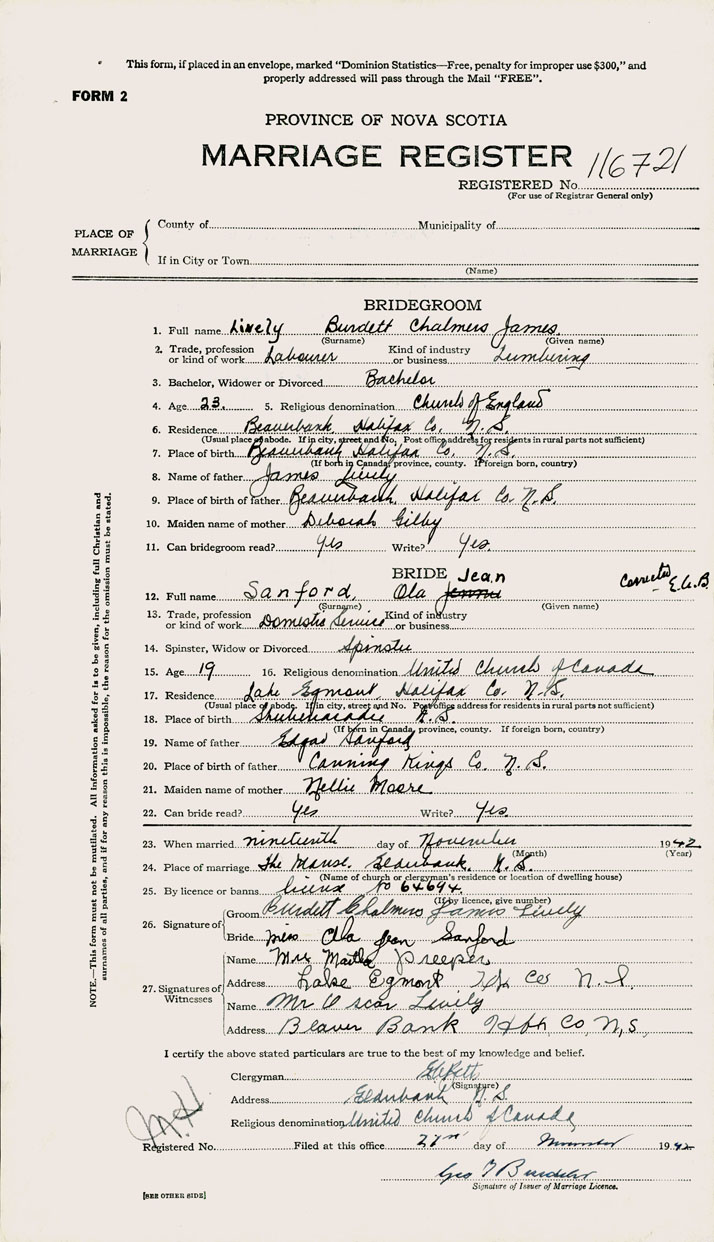 This form, if placed in an envelope, marked "Dominion Statistics—Free, penalty for improper use $300," and
properly addressed will pass through the Mail "FREE".
FORM 2
PROVINCE OF NOVA SCOTIA
MARRIAGE REGISTER 116721
REGISTERED No.
(For use of Registrar General only)
PLACE OF MARRIAGE
County of Municipality of
If in City or Town
(Name)
BRIDEGROOM
1. Full name Lively Burdett Chalmers James
(Surname) (Given name)
2. Trade, profession or kind of work Labourer Kind of industry or business Lumbering
3. Bachelor, Widower or Divorced Bachelor
4. Age 23. 5. Religious denomination Church of England
6. Residence Beaverbank Halifax Co. N.S.
(Usual place of abode. If in city, street and No. Post office address for residents in rural parts not sufficient)
7. Place of birth Beaverbank Halifax Co, N.S.
(If born in Canada, province, county. If foreign born, country)
8. Name of father James Lively
9. Place of birth of father Beaverbank, Halifax Co. N.S.
10. Maiden name of mother Deborah Gilby
11. Can bridegroom read? Yes Write? Yes.
BRIDE Jean
12. Full name Sanford, Ola Corrected E.G.B.
(Surname) (Given name)
13. Trade, profession or kind of work Domestic Service Kind of industry or business
14. Spinster, Widow or Divorced Spinster
15. Age 19 16. Religious denomination United Church of Canada
17. Residence Lake Egmont, Halifax Co. N.S.
(Usual place of abode. If in city, street and No. Post office address for residents in rural parts not sufficient)
18. Place of birth Shubenacadie N.S.
(If born in Canada, province, county. If foreign born, country)
19. Name of father Edgar Sanford
20. Place of birth of father Canning Kings Co. N.S.
21. Maiden name of mother Nellie Moore
22. Can bride read? Yes Write? Yes.
23. When married nineteenth day of November 1942
(Month) (Year)
24. Place of marriage The Manse. Elderbank, N.S.
(Name of church or clergyman's residence or location of dwelling house)
25. By licence or banns licence No 64694.
(If by licence, give number)
26. Signature of
Groom Burdett Chalmers James Lively
Bride Miss Ola Jean Sanford
27. Signatures of Witnesses
Name Mrs Preeper
Address Lake Egmont Hfx Co N.S.
Name Mr Oscar Lively
Address Beaver Bank Hfx, Co, N,S,
I certify the above stated particulars are true to the best of my knowledge and belief.
Clergyman
(Signature)
Address Elderbank N.S.
Religious denomination United Church of Canada
Registered No. Filed at this office 27th day of November 1942
Geo T
Signature of Issuer of Marriage Licence.
[SEE OTHER SIDE]
NOTE.—This form must not be mutilated. All information asked for is to be given, including full Christian and
surnames of all parties, and if for any reason this is impossible, the reason for the omission must be stated.